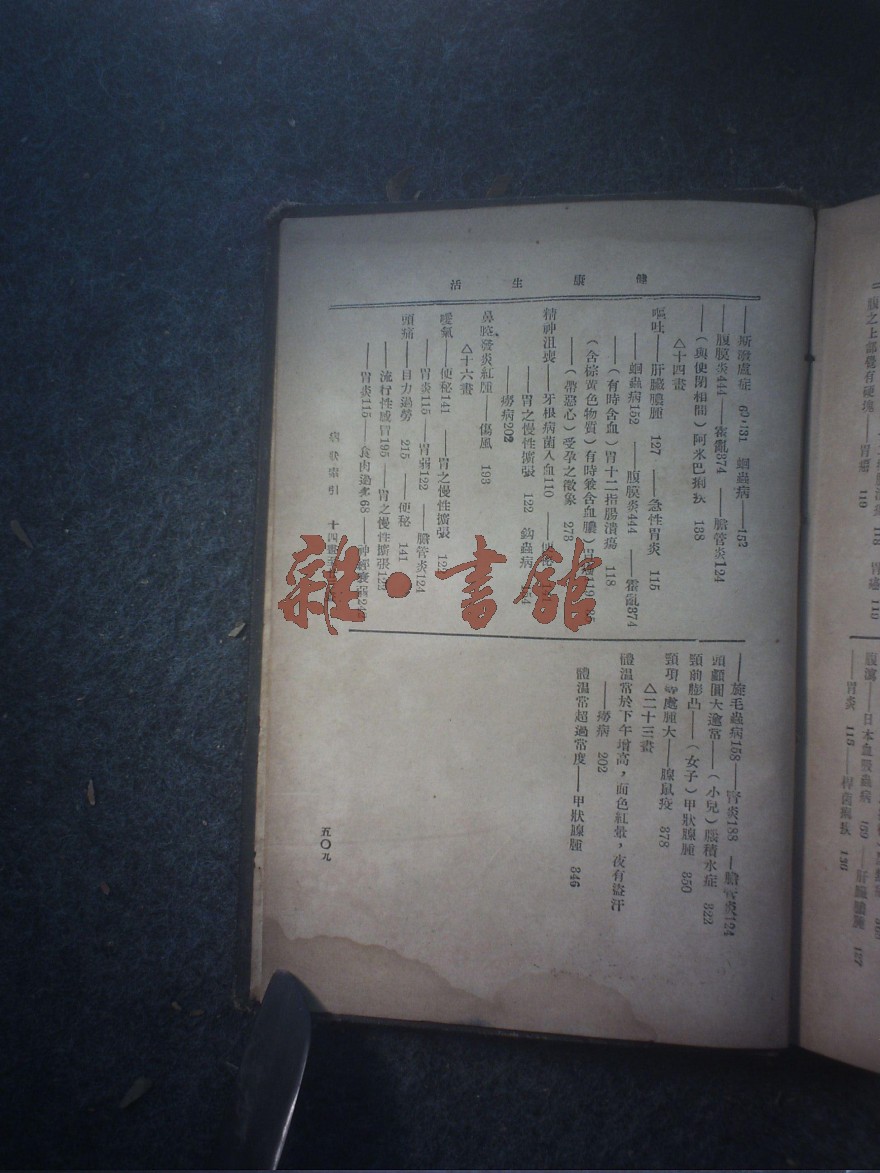 健康生活
——斯潑盧症 蛔蟲病——152
——腹膜炎444 ——霍亂374 ——膽管炎124
——(與便閉相間)阿米巴痢疾 138
△十四畫
嘔吐——肝臟膿腫 127 ——急性胃炎 115
——蛔蟲病152 ——腹膜炎444 ——霍亂374
——(有時含血)胃十二指腸潰瘍 118
(含棕黄色物質)有時兼含血膿)
——(帶惡心)受孕之徵象 278
精神沮喪——牙根病菌入血110
——胃之慢性擴張 122 鈎蟲病
——癆病202
鼻腔發炎紅腫——傷風 193
△十六畫
噯氣——便秘141 ——胃之慢性擴張
——胃炎115 ——胃弱122 ——膽管炎124
頭痛——目力過勞 215 ——便秘 141
——流行性感冒195 ——胃之慢性擴張
——胃炎115 ——食肉過多68
——旋毛蟲病158——腎炎188 ——膽管炎124
頭顱圓大逾常——(小兒)腦積水症 322
頸前膨凸——(女子)甲狀腺腫 350
頸項等處腫大——腺鼠疫 378
△二十三畫
體温常於下午增高，面色紅暈，夜有盜汗
——癆病 202
體温常超過常度——甲狀腺腫 346
病狀索引 十四畫至
五〇九
雜·書館
腹之上部覺有硬塊——胃癌 119
腹瀉——日本血吸蟲病 ——肝臟膿腫 127
——胃炎 115 ——桿菌痢疾 136